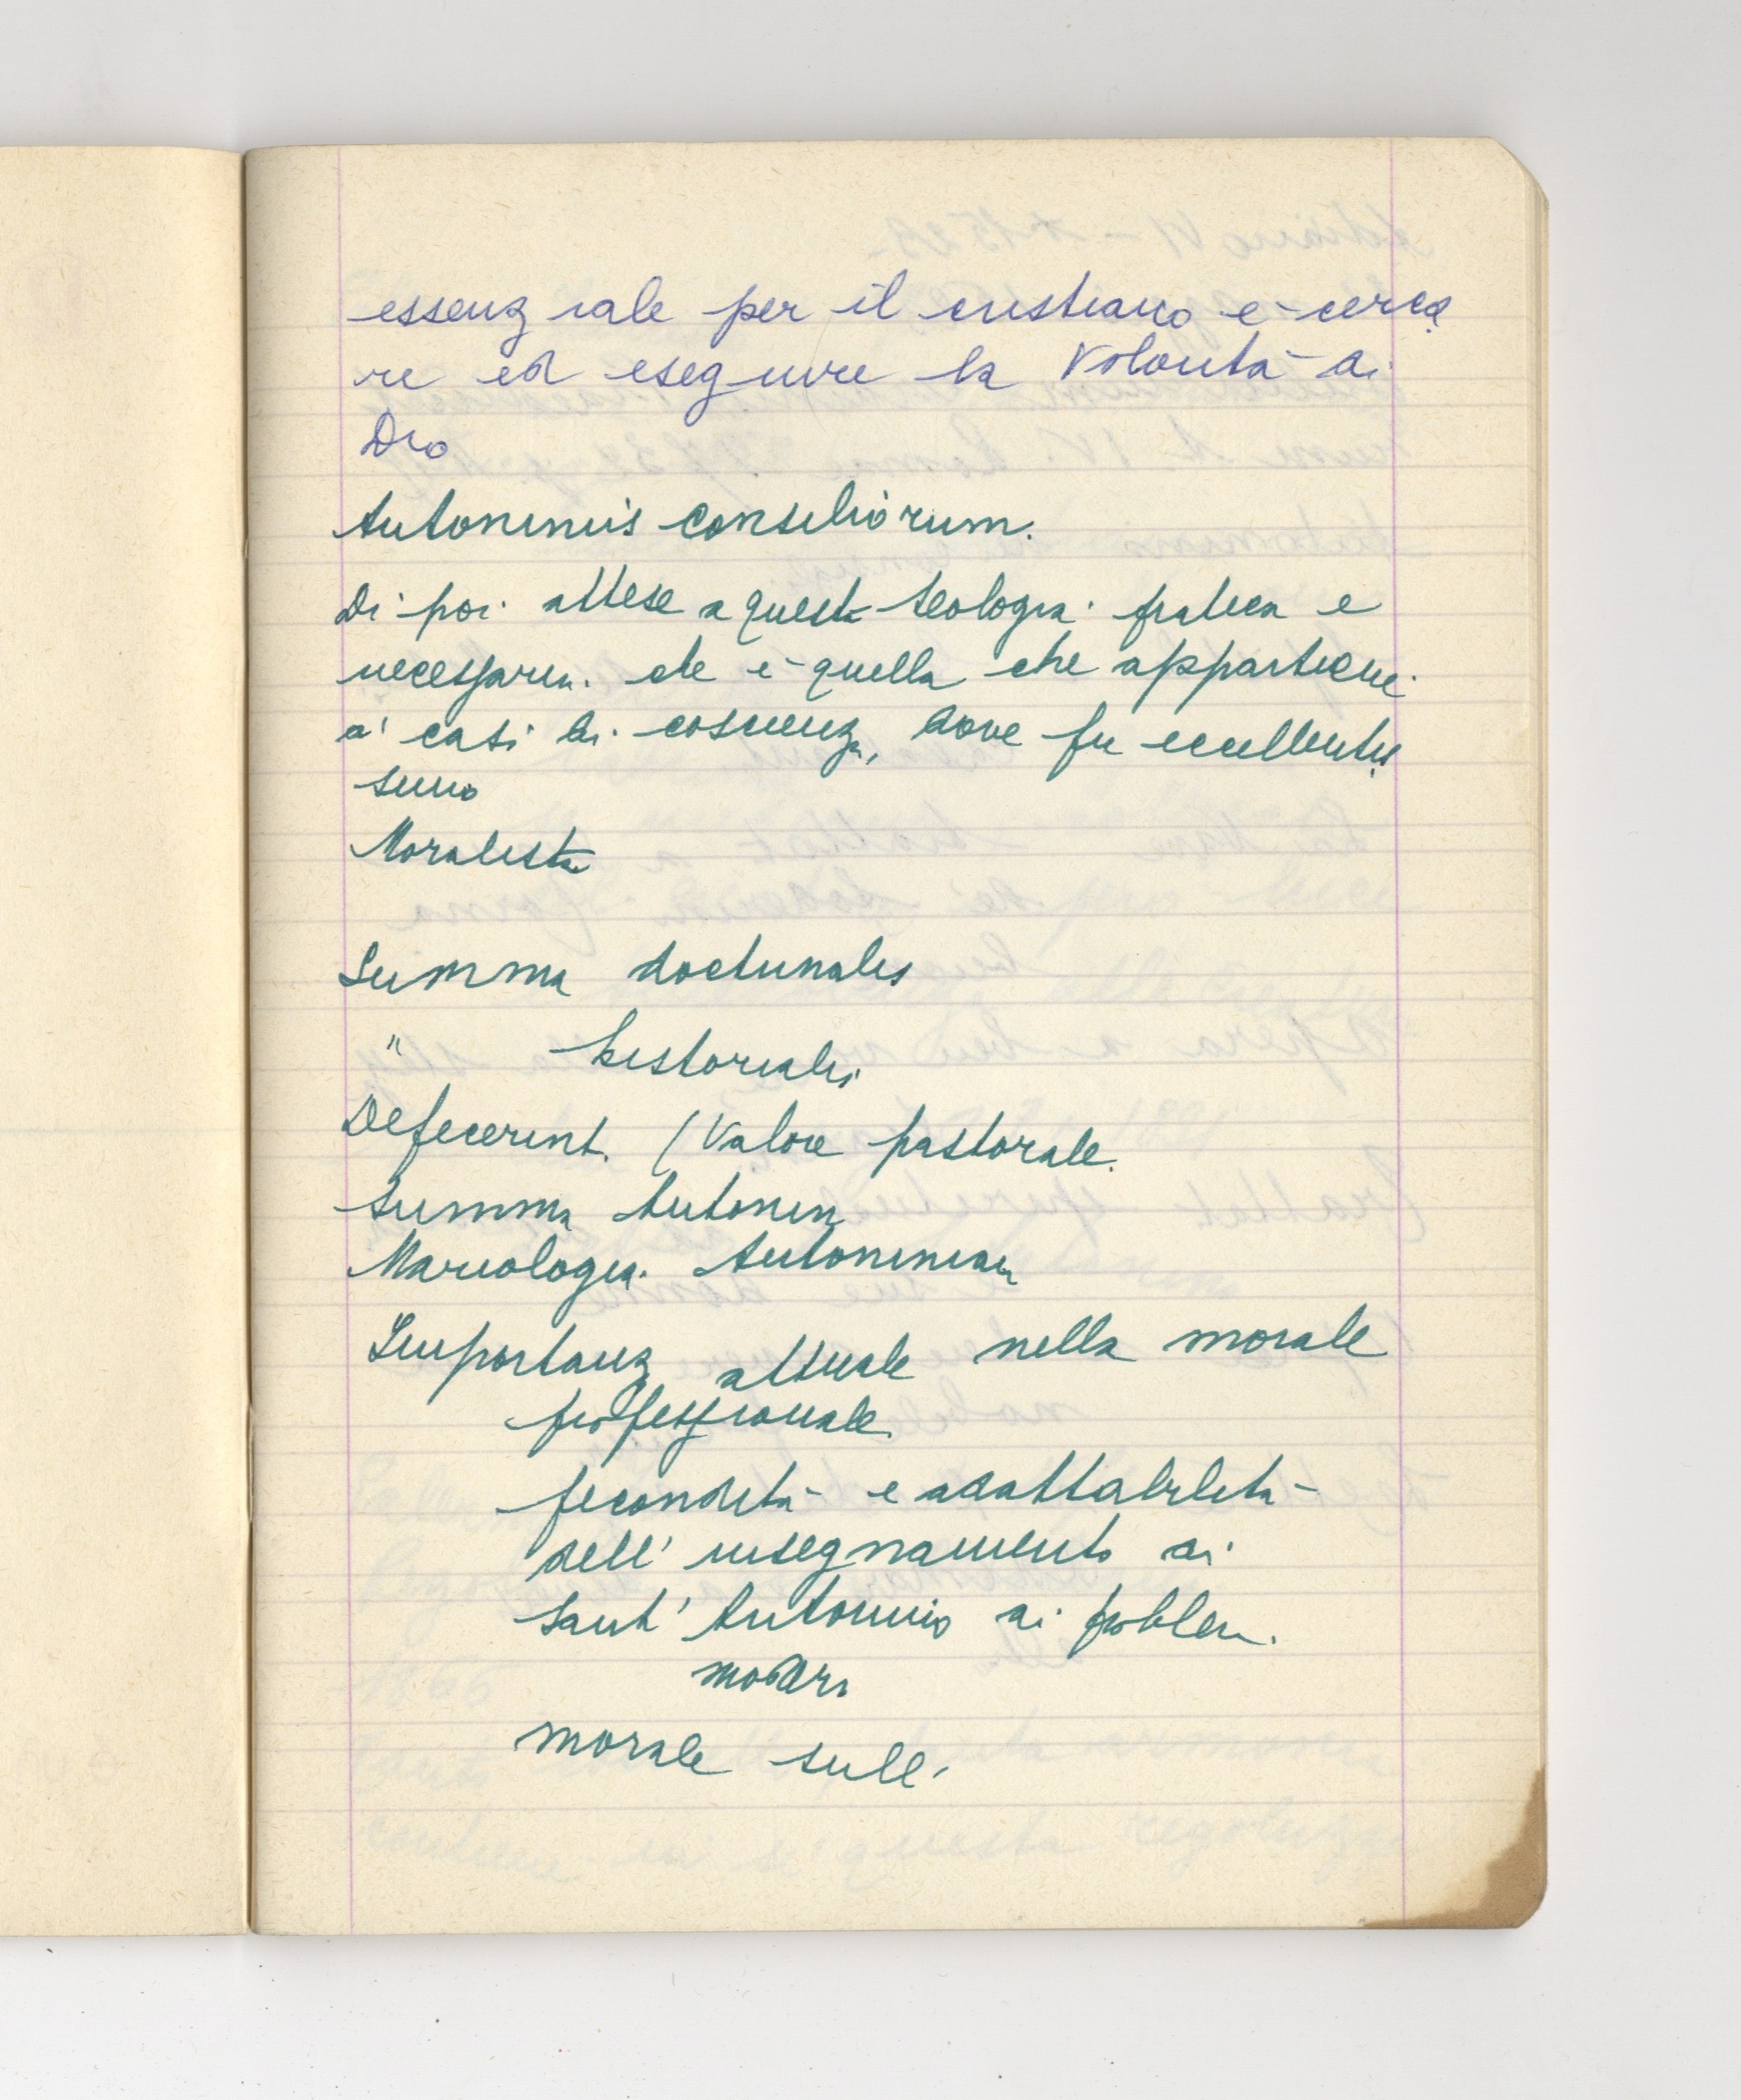 essenziale per il cristiano è cerca
re ed eseguire la Volontà di
Dio
Antoninus consiliorum.
Di poi attese a questa teologia pratica e
necessaria che è quella che appartiene
a' casi di coscienza, dove fu eccellentis
simo
Moralista
Summa doctrinalis
" historialis
Defecerunt. (Valore pastorale.
Summa Antonin
Mariologia Antoniniana
Importanza attuale nella morale
professionale
fecondità e adattabilità
dell'insegnamento di
Sant'Antonino ai problemi
morale sull'